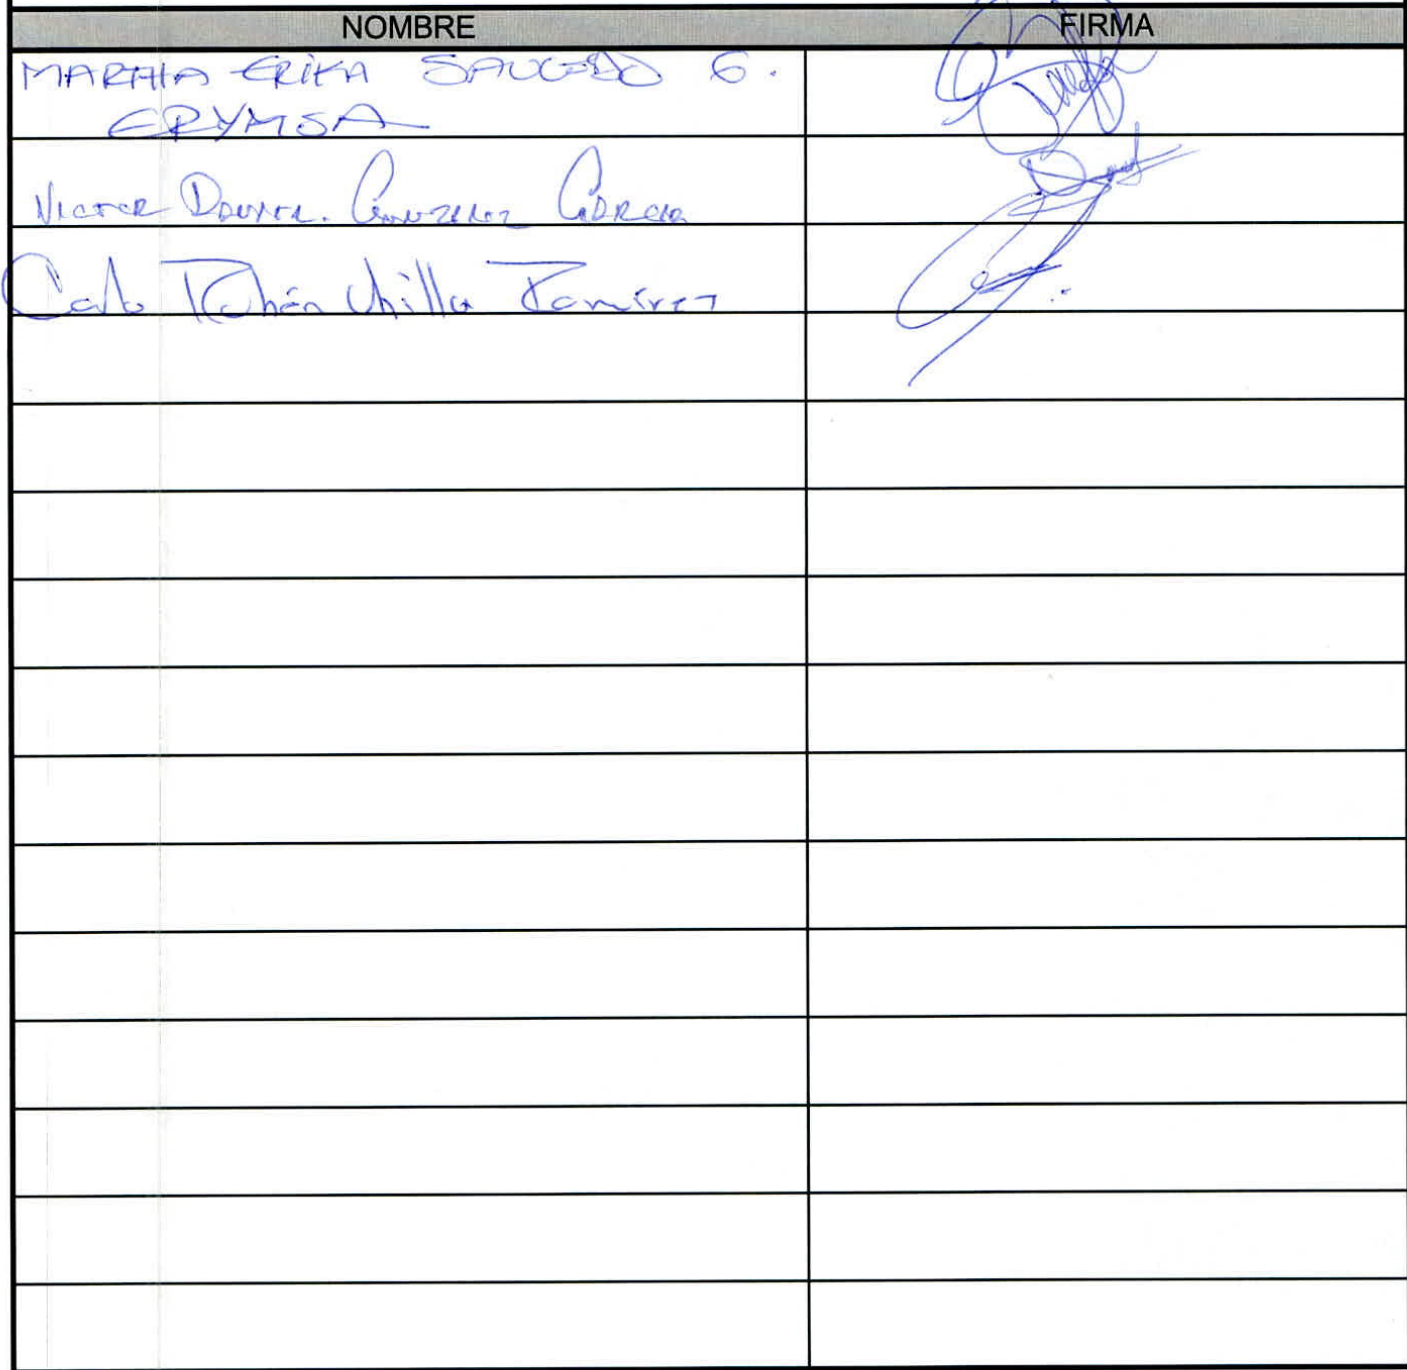 NOMBRE FIRMA
MARTHA ERIKA SAUCEDO G.
ERYMSA
VICTOR DANIEL. GONZALEZ GARCIA
Carlo Rubén Uhilla Ramírez